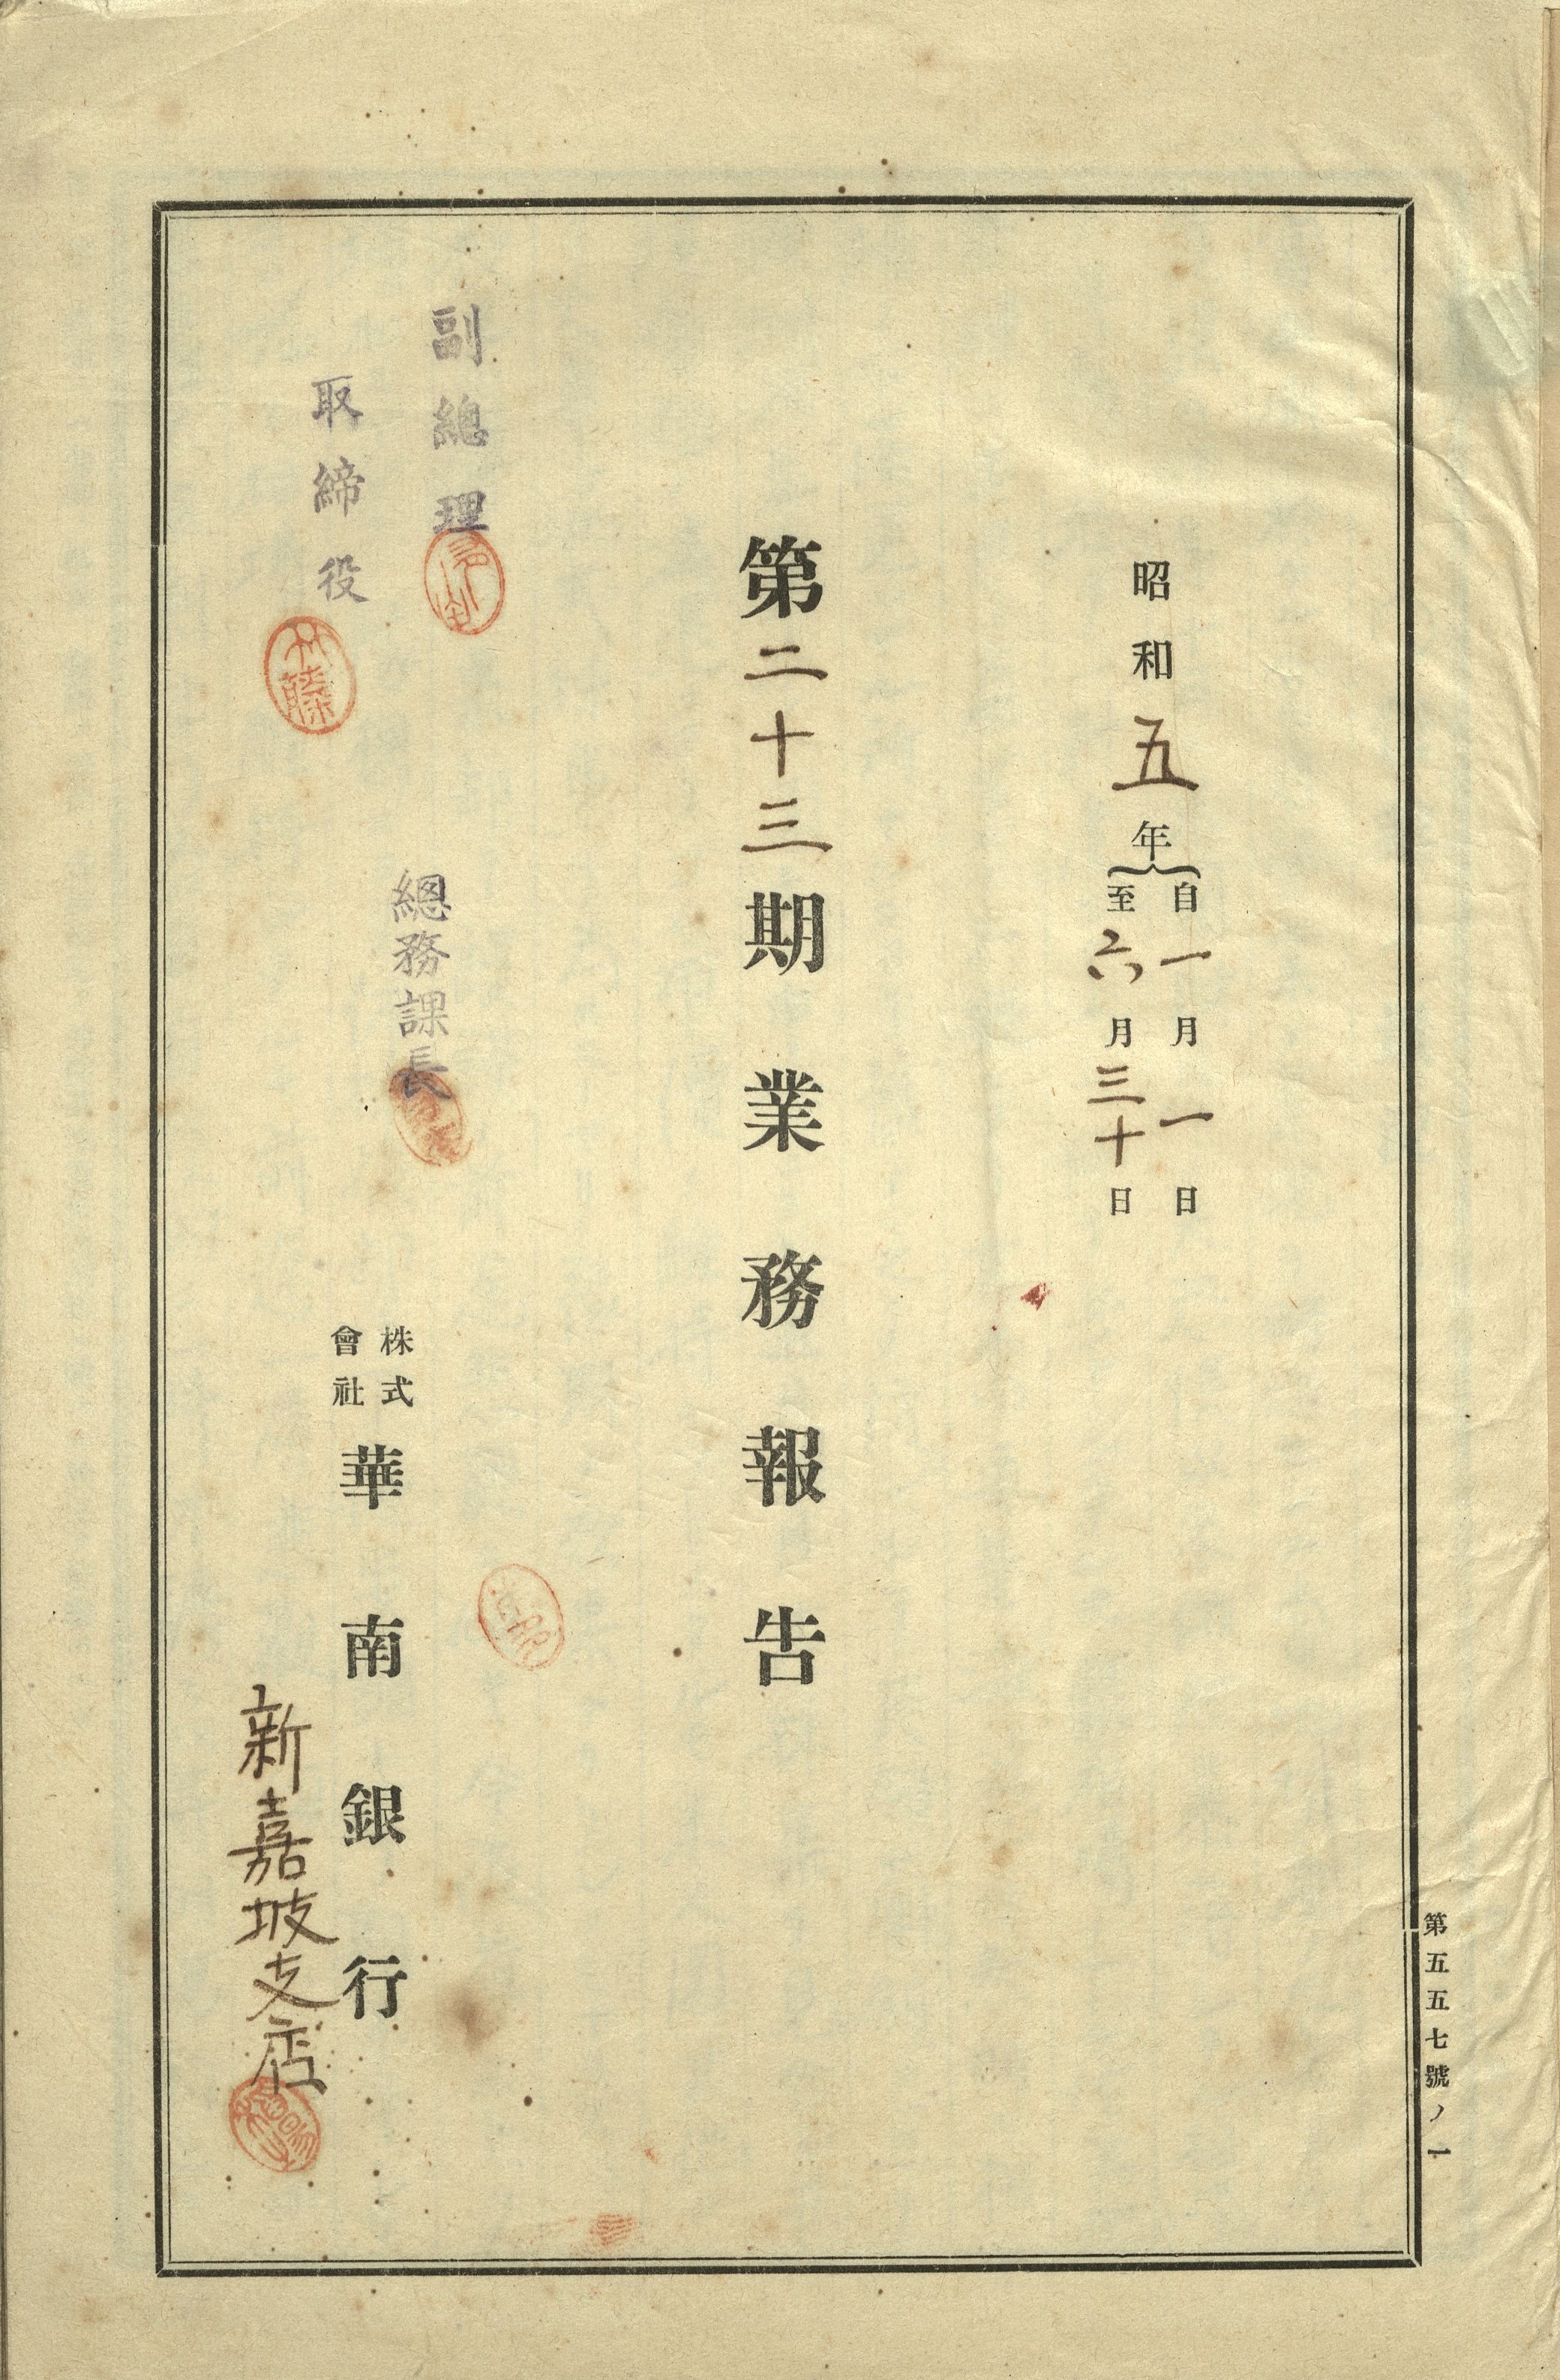 第五五七號ノ一
昭和五年
自一月一日
至六月三十日
第二十三期業務報告
副總理
取締役
總務課長
株式
會社
華南銀行
新嘉坡支店